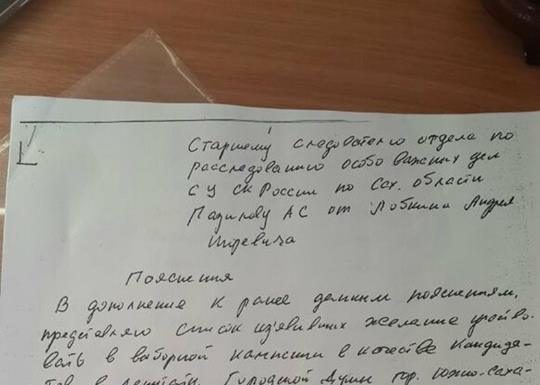 Старшему следователю отдела по
расследованию особо важных дел
СУ СК России по Сах. области
АС от Лобкина Андрея
Игоревича
Пояснения
В дополнение к ранее данным пояснениям,
представляю список изъявивших желание участво-
вать в выборной кампании в качестве кандида-
тов в депутаты Городской Думы гор. Южно-Саха-